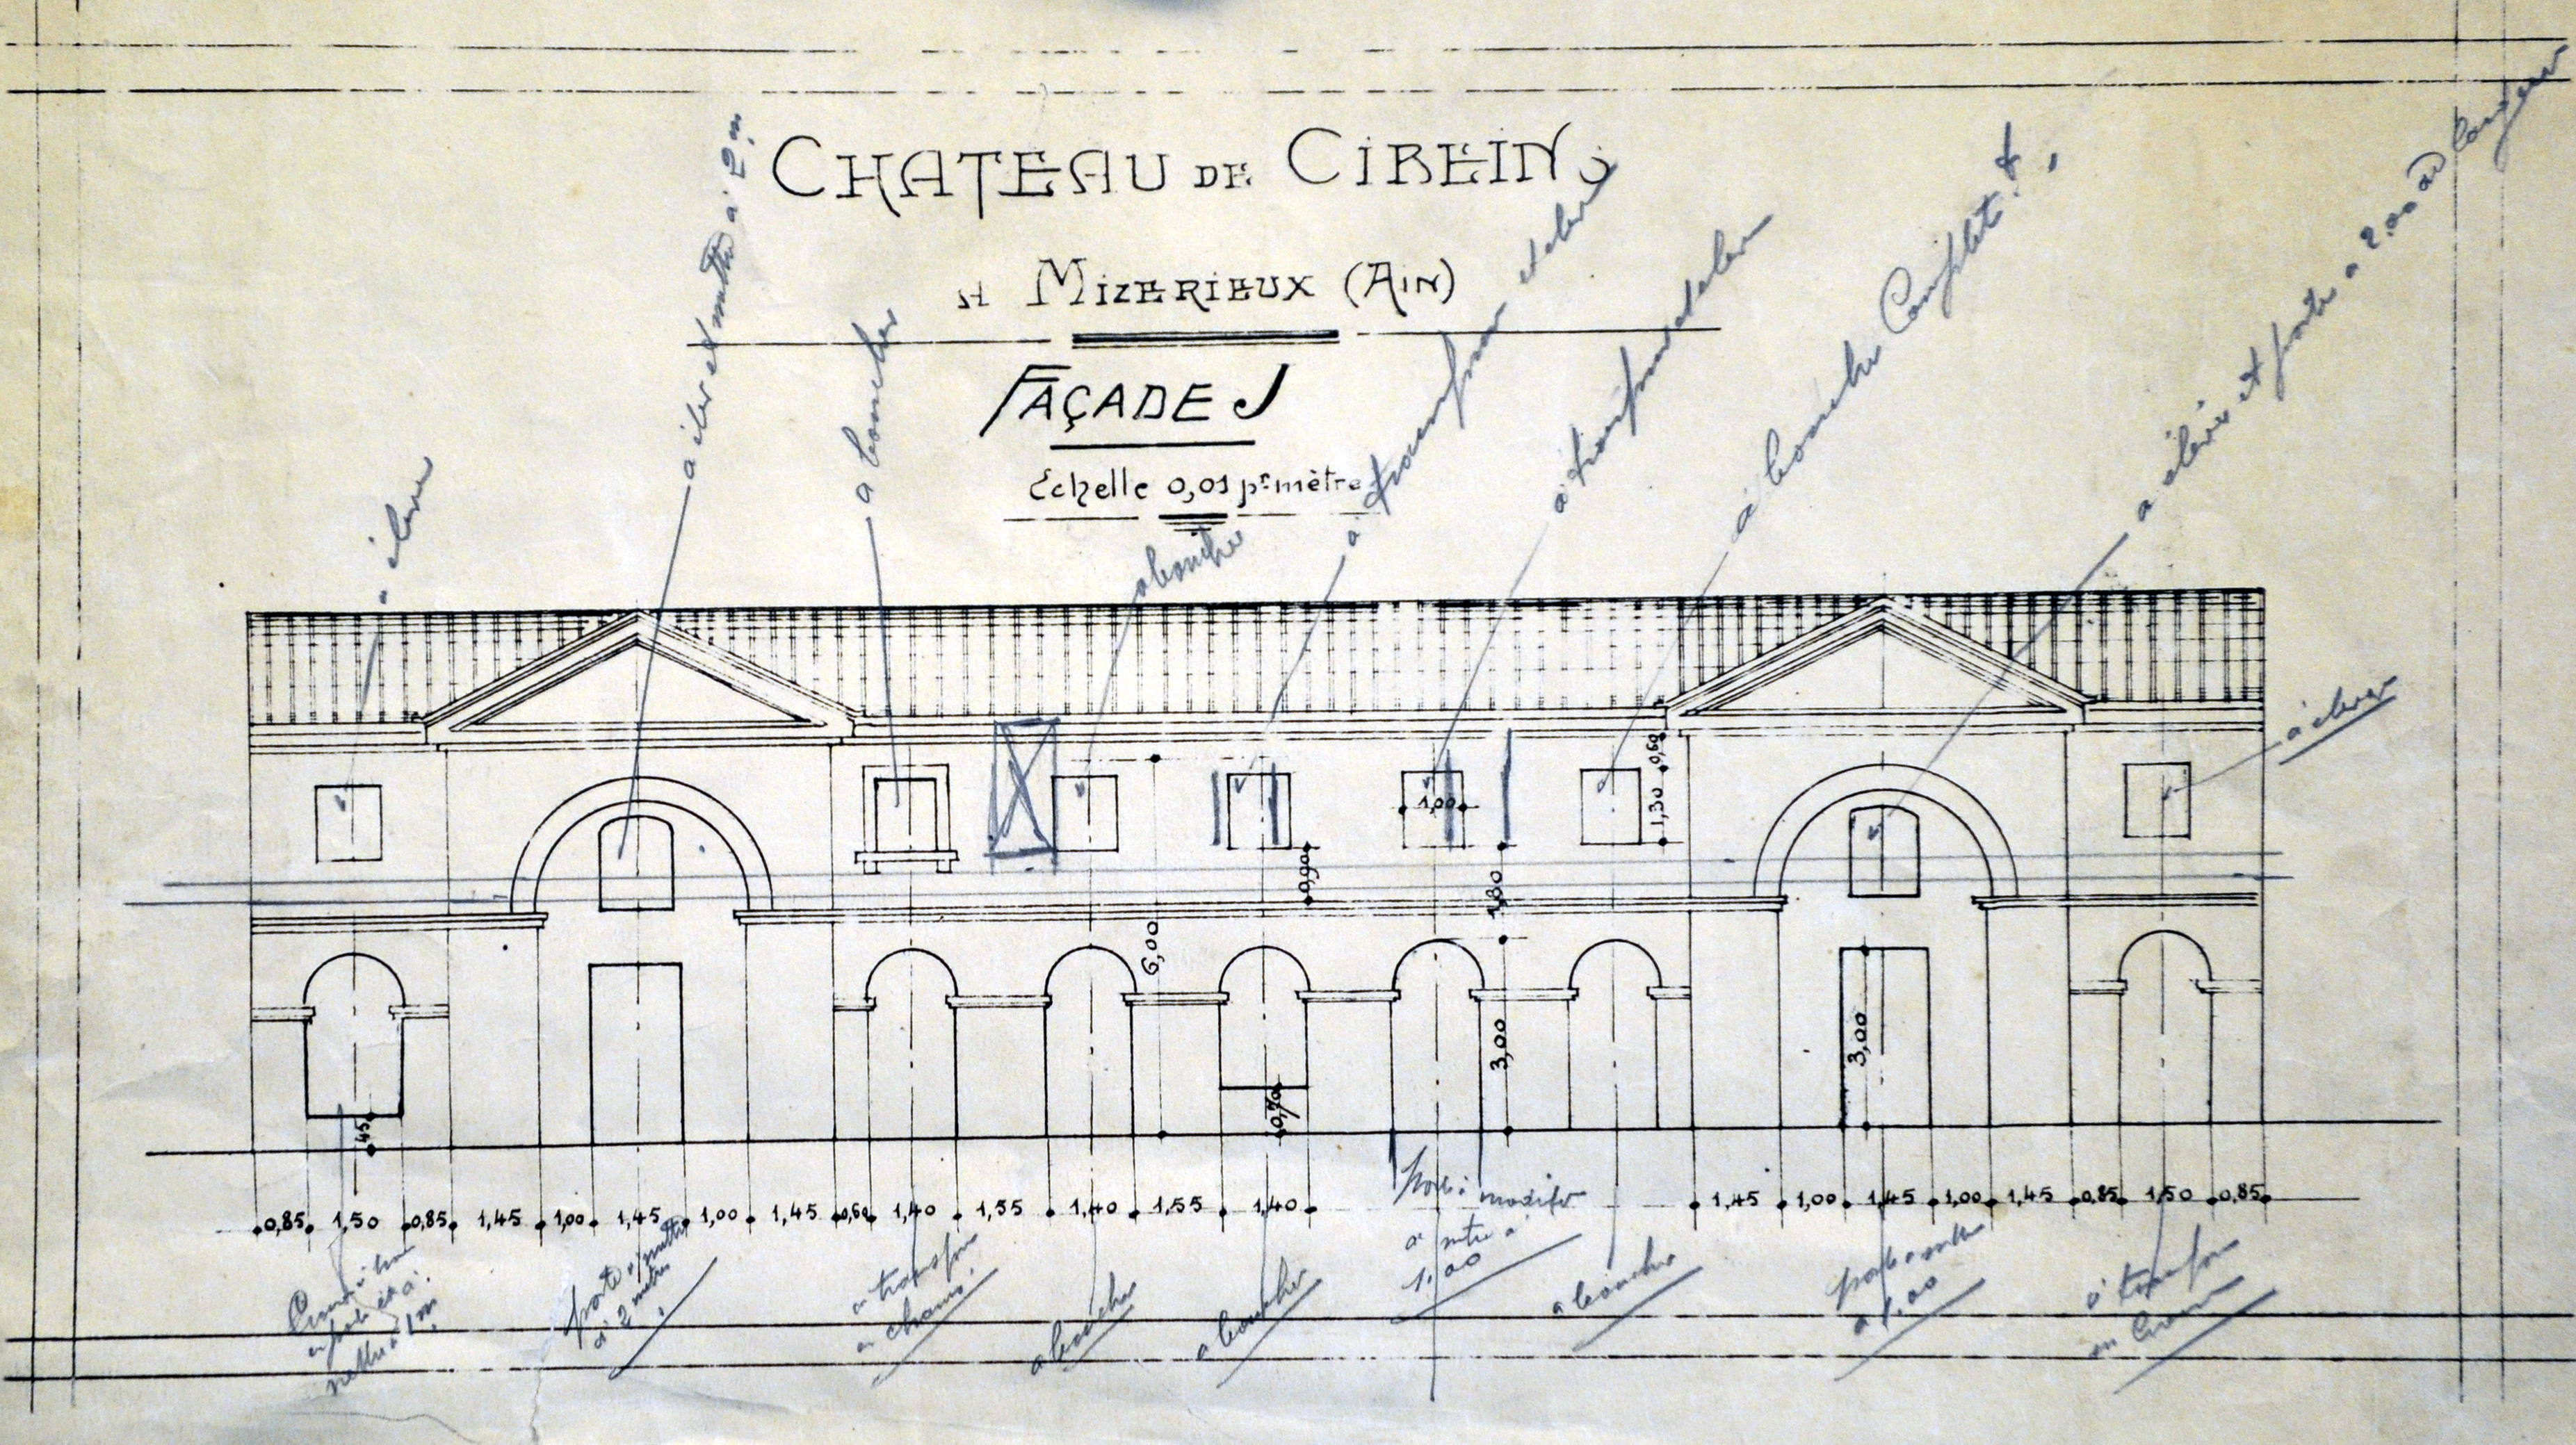 CHATEAU DE CIBEINS
A MIZERIEUX (AIN)
FAÇADE J
Echelle 0,01 pr mètre
a élever
a élever et mettre a 2m
a boucher
a boucher
a transformer et élever
a transformer et élever
a boucher Complet.t
a élever et porte a 2.00 de largeur
à élever
0,60
1,30
1,00
0,90
1,30
6,00
3,00
3,00
0,70
45
0,85 1,50 0,85 1,45 1,00 1,45 1,00 1,45 0,60 1,40 1,55 1,40 1,55 1,40
1,45 1,00 1,45 1,00 1,45 0,85 1,50 0,85
a 1m
porte a mettre
a 2 metres
a transfor
a boucher
a boucher
porte a modifier
a mettre a
1.00
a boucher
porte a mettre
a 1.00
a transfor
en